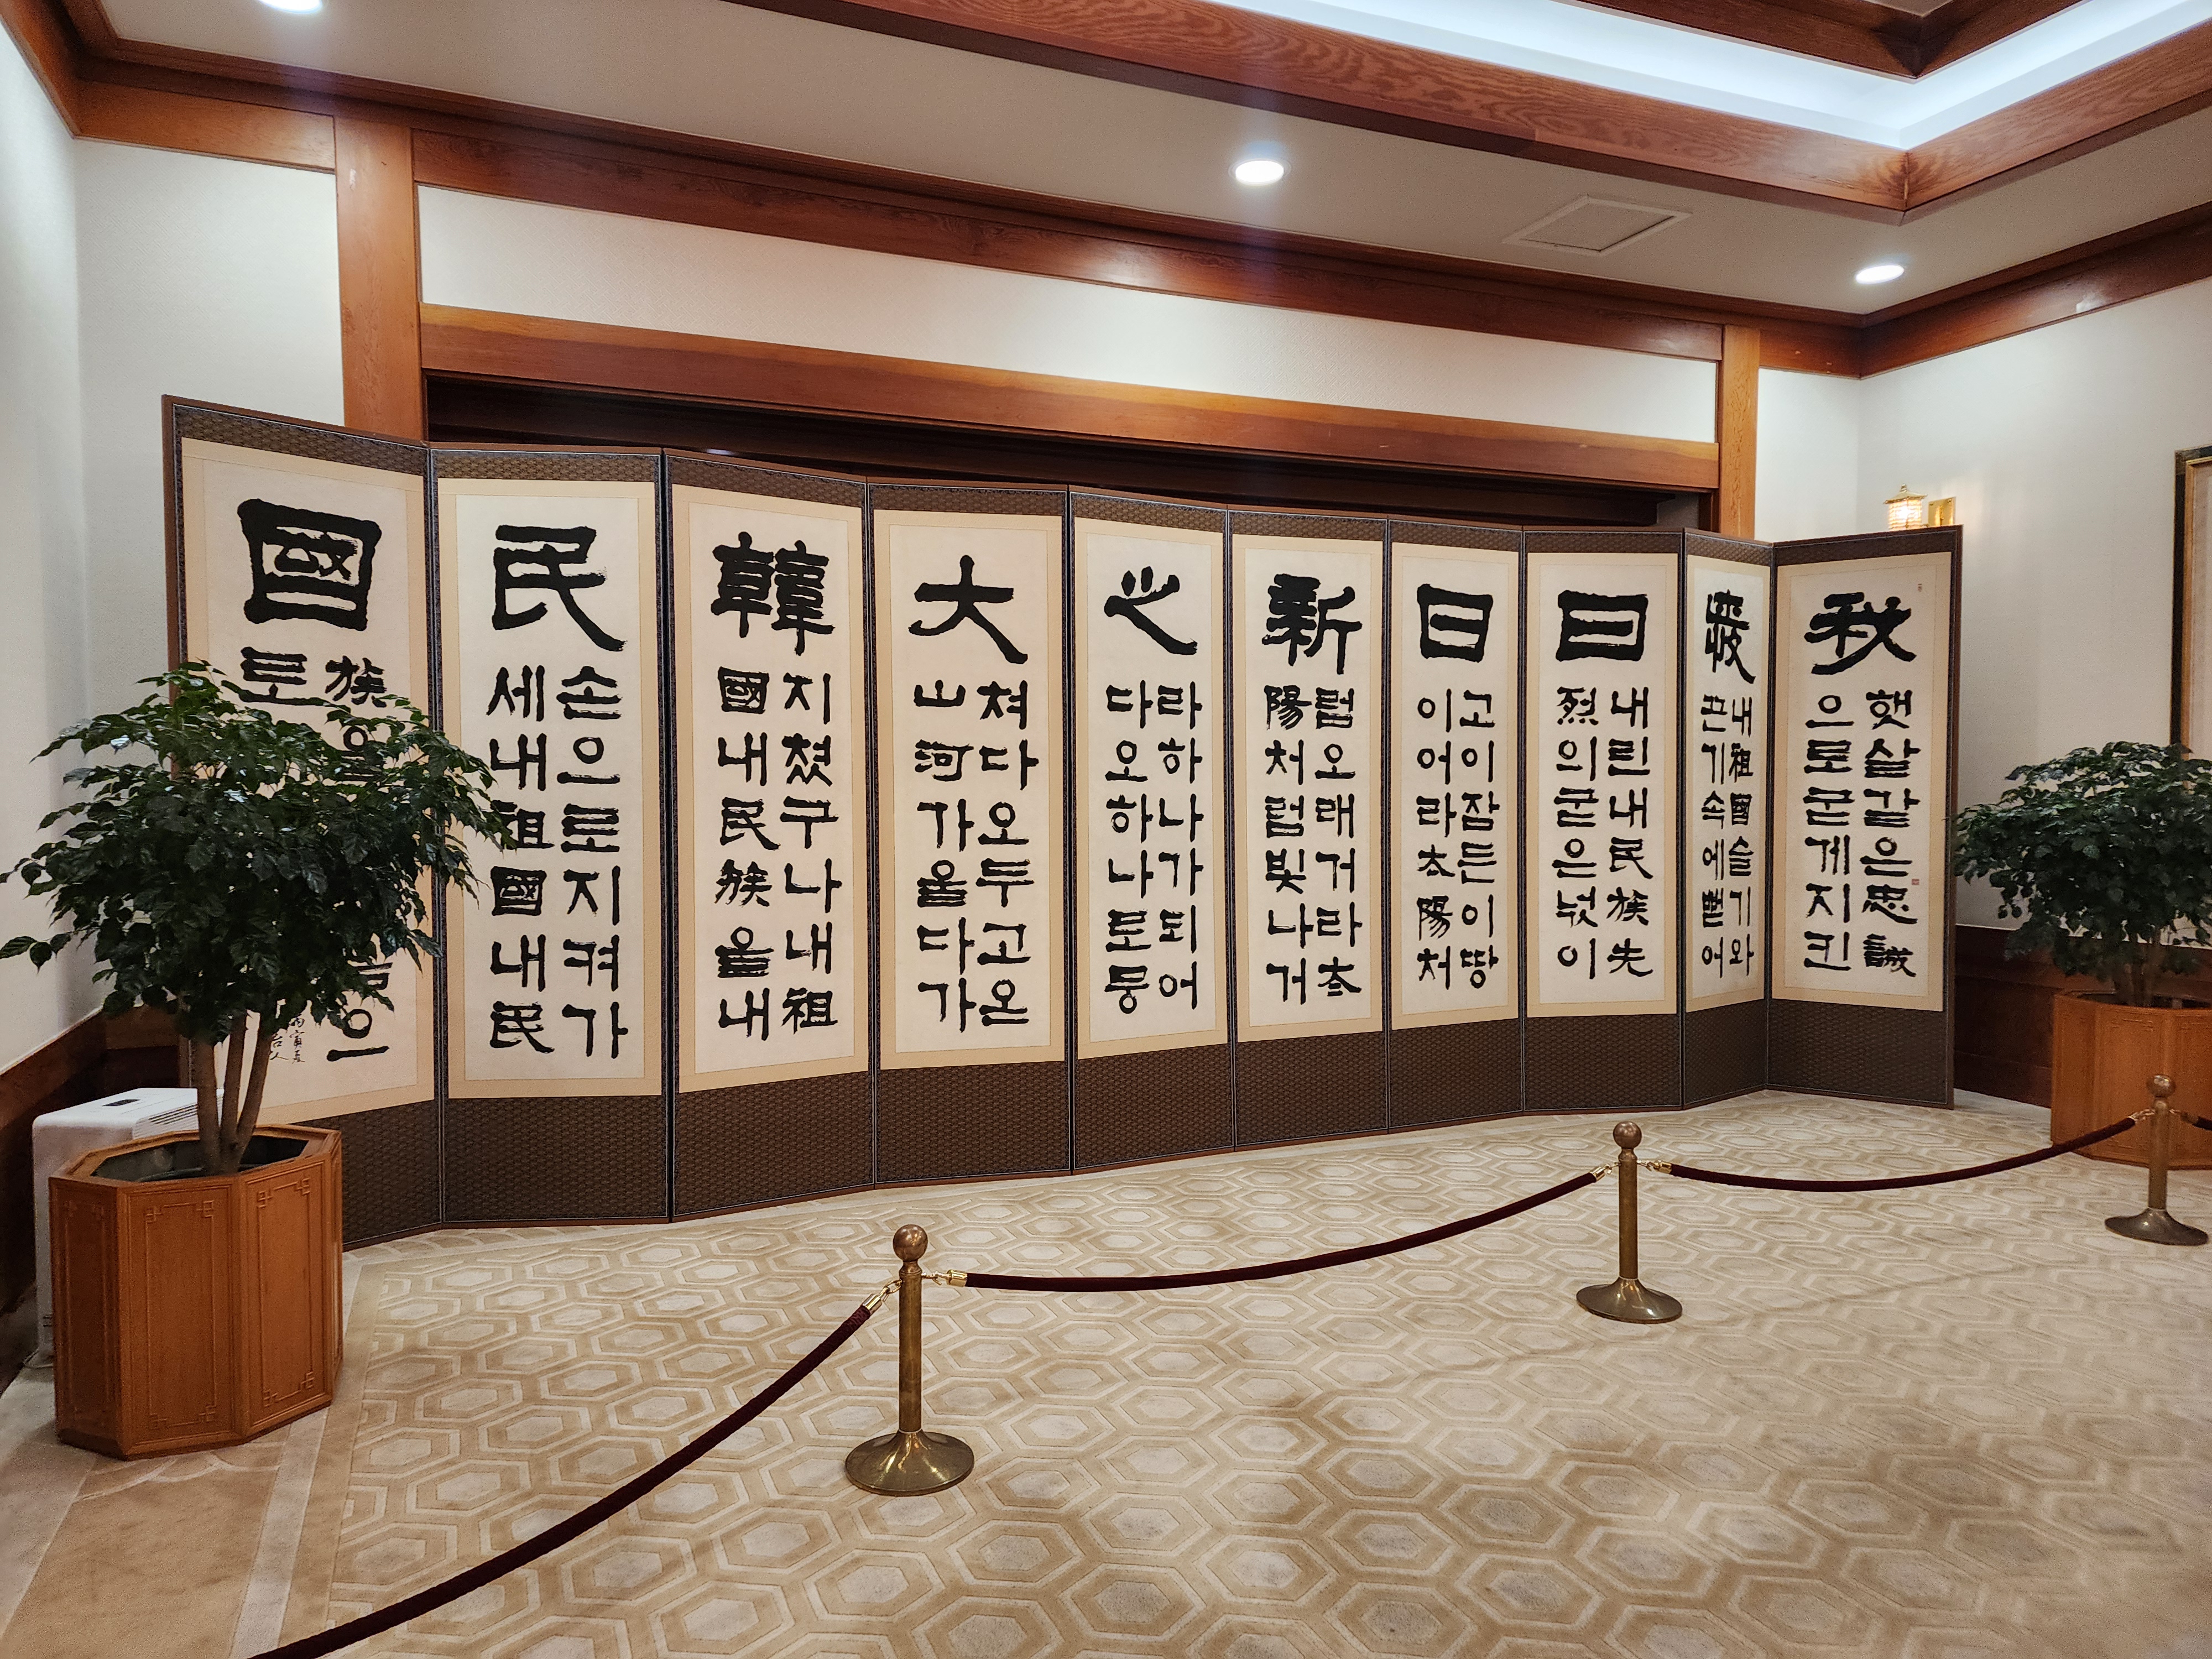 秋
햇살같은忠誠
으로굳게지킨
내祖國슬기와
끈기속에뻗어
日
내린내民族先
烈의굳은넋이
日
고이잠든이땅
이어라太陽처
新
럼오래거라太
陽처럼빛나거
之
라하나가되어
다오하나로뭉
大
쳐다오두고온
山河가을다가
韓
지쳤구나내祖
國내民族을내
民
손으로지켜가
세내祖國내民
國
族을 으
토